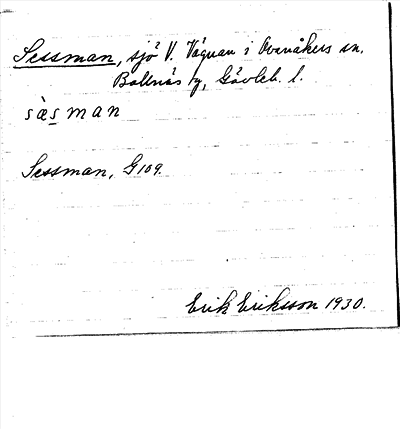 Sessman, sjö V. Vågnan i Ovanåkers sn.
Bollnäs fg, Gävleb. l.
sæsman
Sessman, G109.
Erik Eriksson 1930.